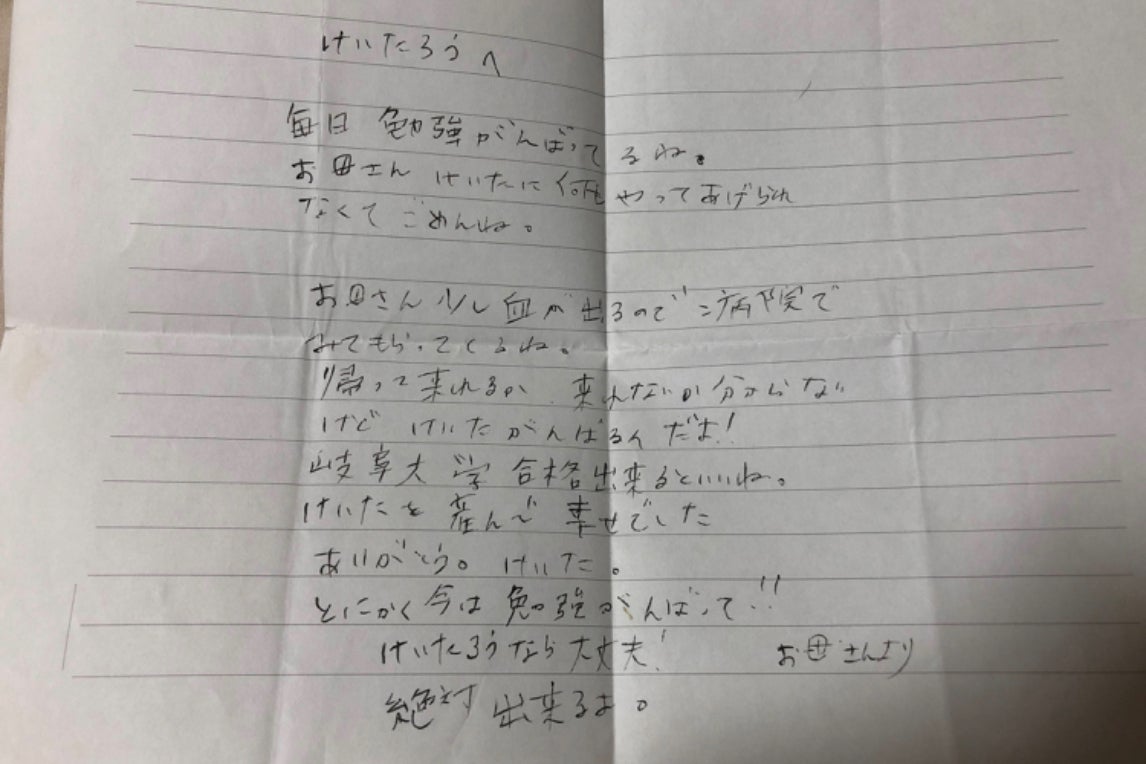 けいたろうへ
毎日 勉強がんばってるね。
お母さん けいたに何もやってあげられ
なくてごめんね。
お母さん少し血が出るので 病院で
みてもらってくるね。
帰って来れるか、来れないか分からない
けど けいたがんばるんだよ!
岐阜大学 合格出来るといいね。
けいたを産んで幸せでした
ありがとう。けいた。
とにかく今は 勉強がんばって!!
けいたろうなら大丈夫!
お母さんより
絶対出来るよ。